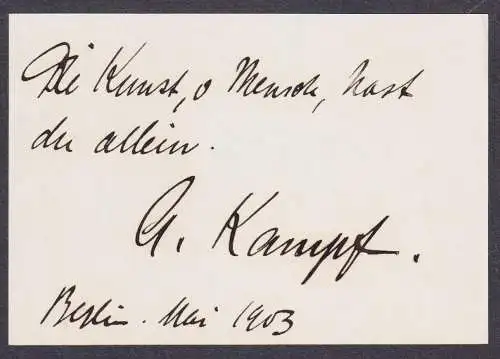 Die Kunst, o Mensch, hast
du allein.
A. Kampf.
Berlin. Mai 1903